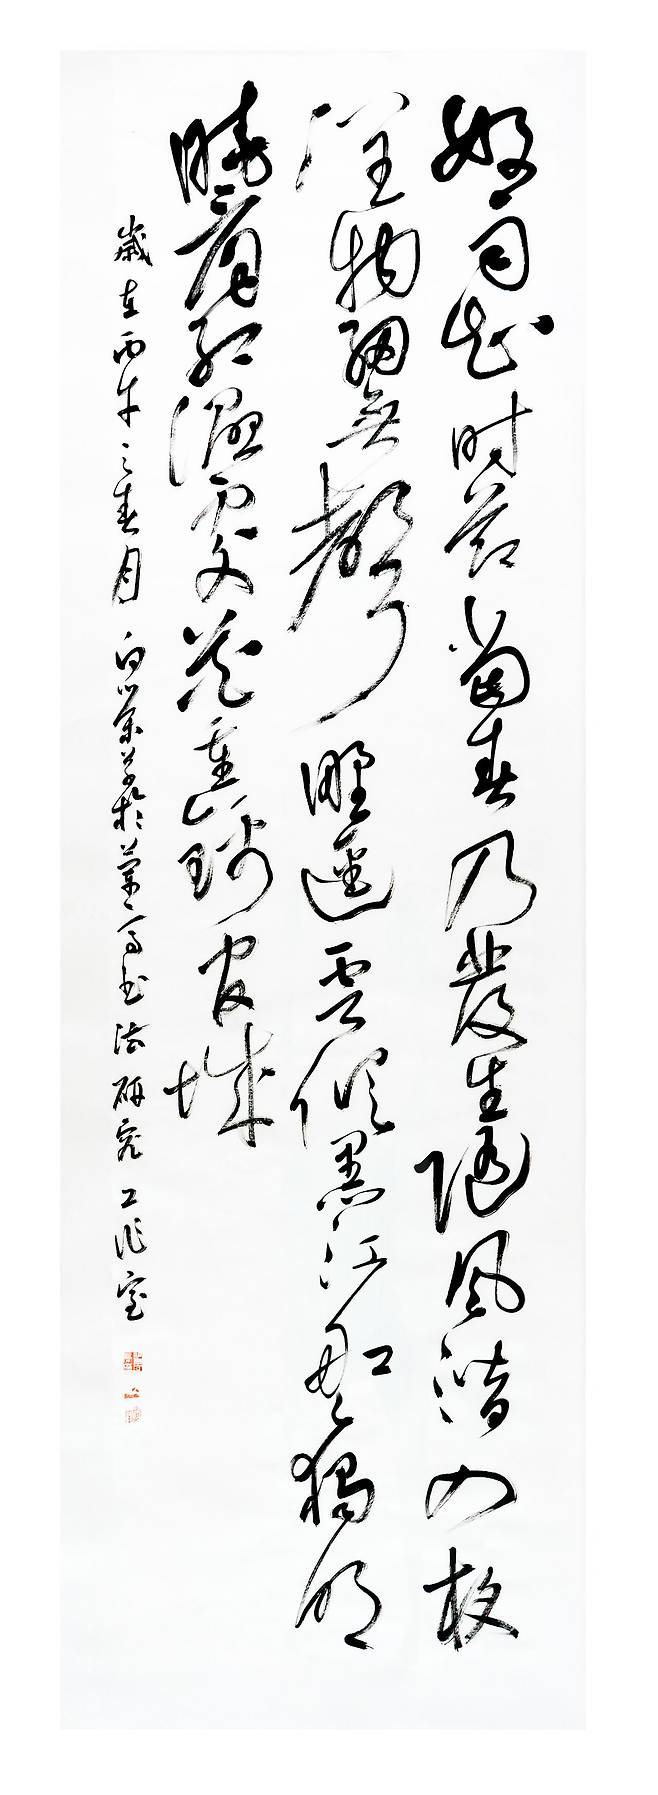 好雨知时節當春乃發生隨風潛入夜
潤物細無聲野徑雲俱黑江船火獨明
曉看紅濕處花重錦官城
歲在丙午之春月白於书法研究工作室